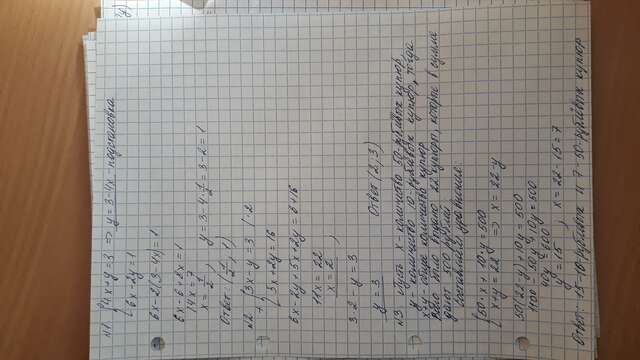 №1 {4x+y=3 => y=3-4x - подстановка
{6x-2y=1
6x-2(3-4x)=1
6x-6+8x=1
14x=7
x=1/2 , y=3-4·1/2=3-2=1
Ответ: (1/2; 1)
№2 {3x-y=3 |·2
+ {5x+2y=16
6x-2y+5x+2y=6+16
11x=22
x=2 ,
3·2-y=3
y=3 Ответ (2; 3)
№3 Пусть x- количество 50-рублёвых купюр,
y- количество 10-рублёвых купюр, тогда
x+y общее количество купюр
было выдано 22 купюры, которые в сумме
дают 500 рублей
Составим уравнение:
{50·x+10·y=500
{x+y=22 => x=22-y
50(22-y)+10y=500
1100-50y+10y=500
40y=600
y=15 , x=22-15=7
Ответ: 15-10-рублёвых и 7-50-рублёвых купюр